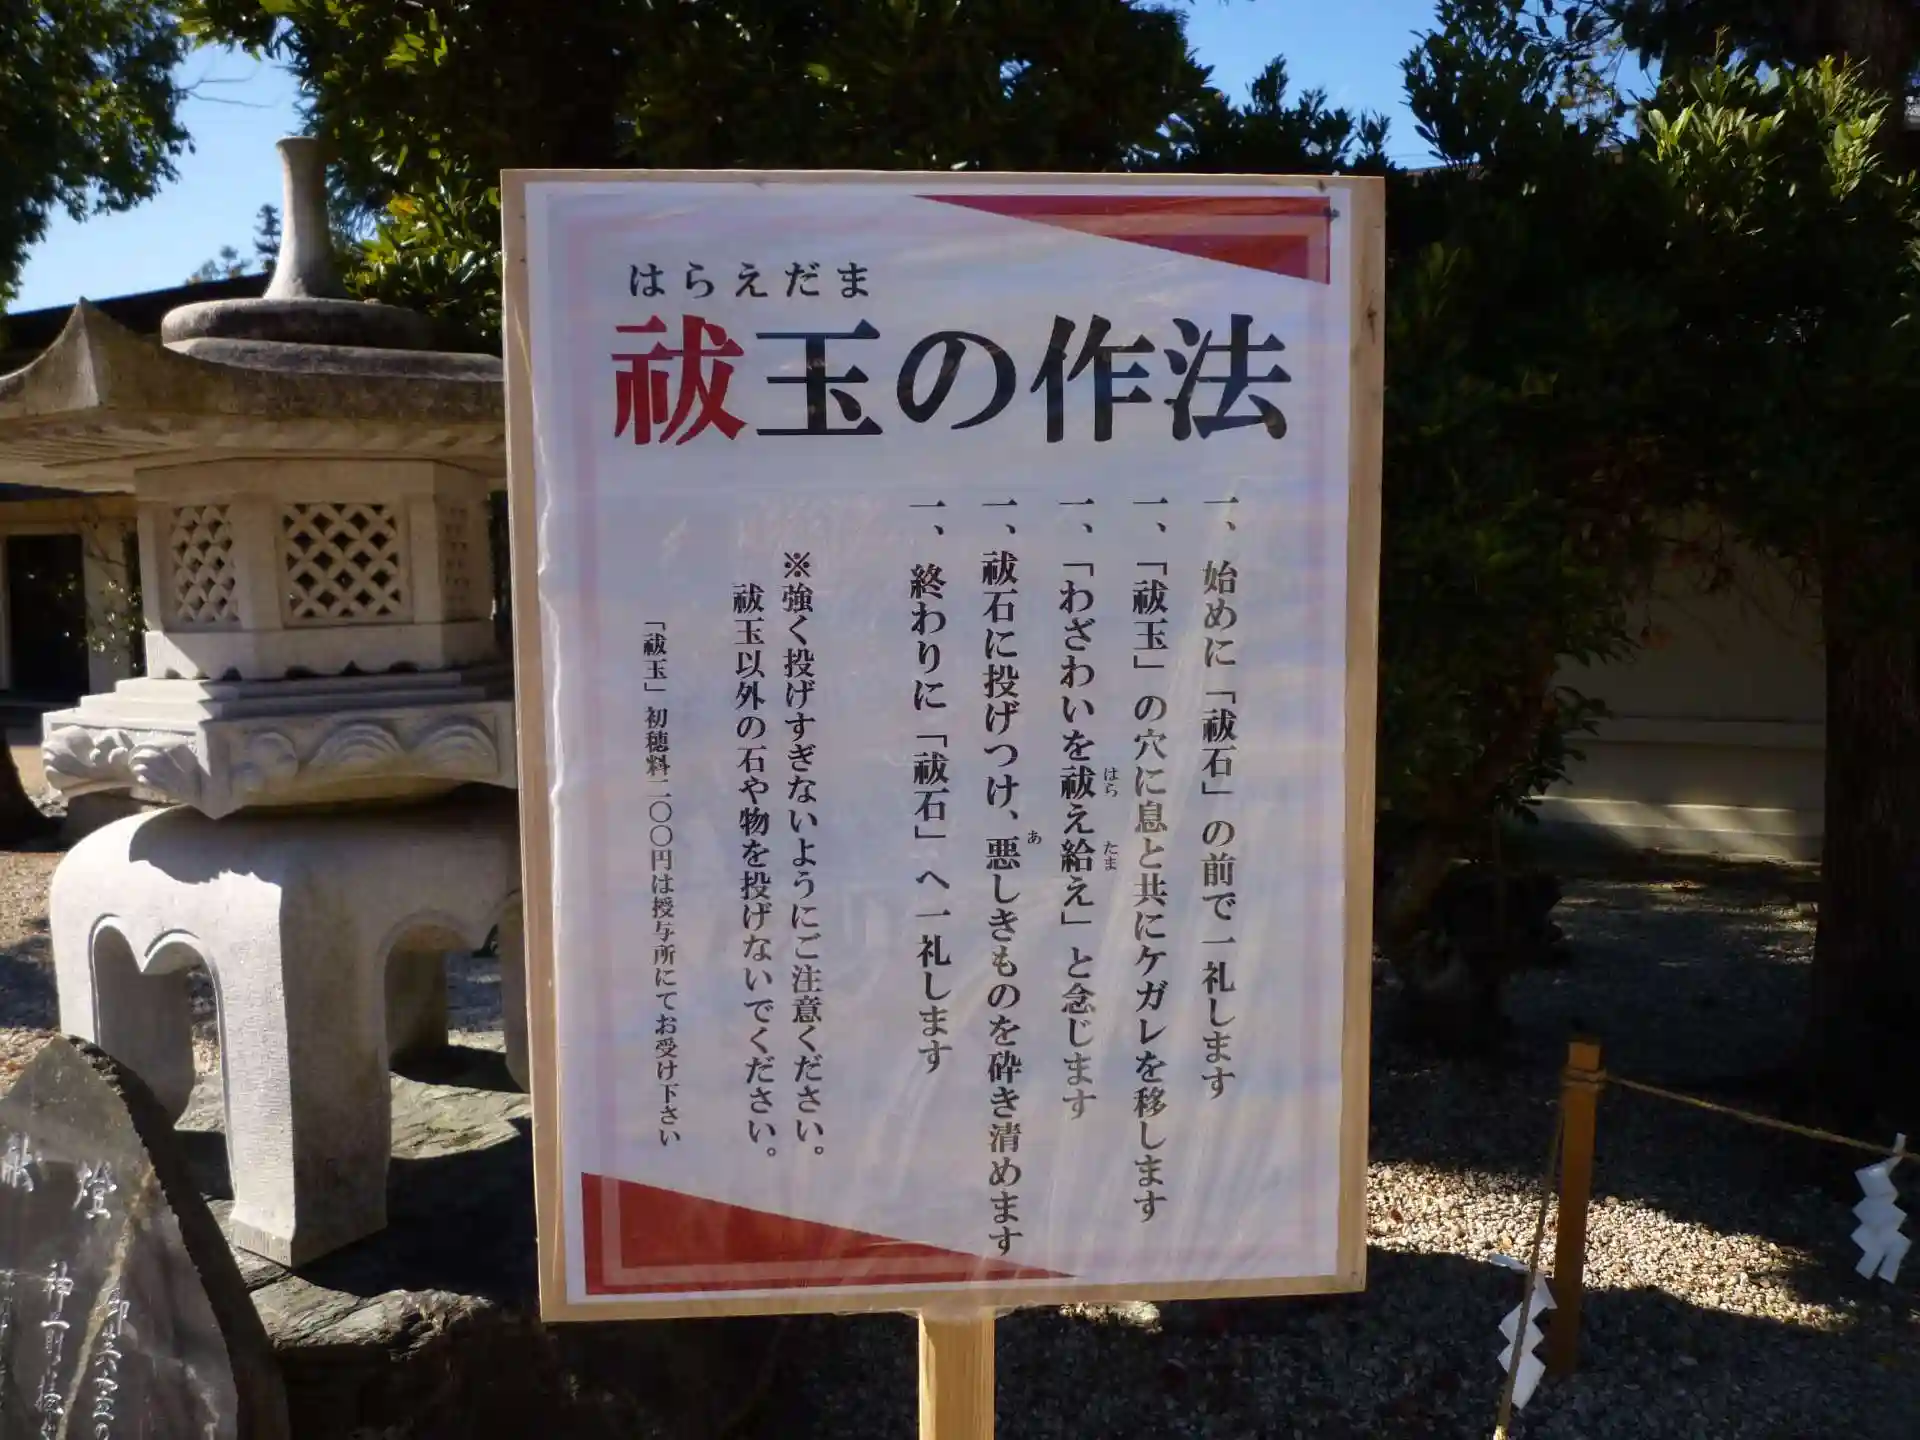 はらえだま
祓玉の作法
一、始めに「祓石」の前で一礼します
一、「祓玉」の穴に息と共にケガレを移します
一、「わざわいを祓え給え」と念じます
はら
たま
一、祓石に投げつけ、悪しきものを砕き清めます
あ
一、終わりに「祓石」へ一礼します
※強く投げすぎないようにご注意ください。
祓玉以外の石や物を投げないでください。
「祓玉」初穂料二〇〇円は授与所にてお受け下さい
献燈